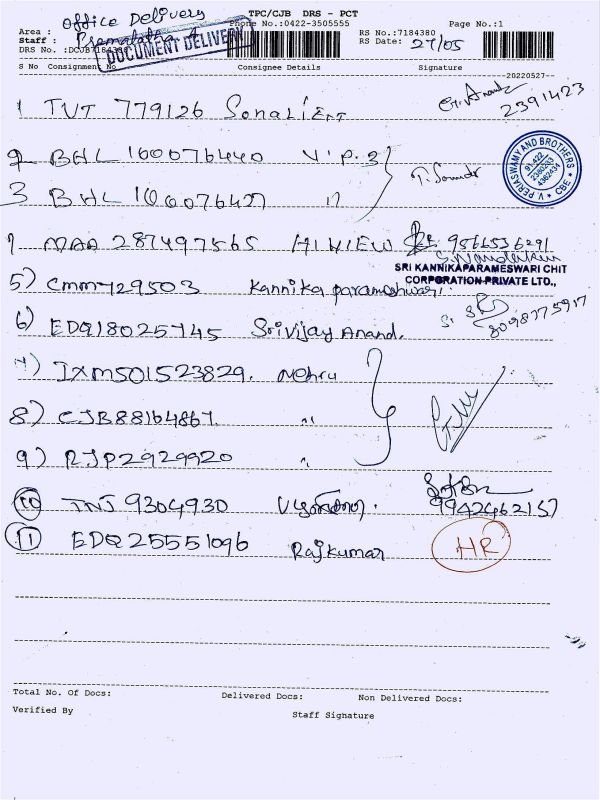 Office Delivery TPC/CJB DRS - PCT
Area : Phone No.:0422-3505555 RS No.:7184380 Page No.:1
Staff : Premalatha A RS Date: 27/05
DOCUMENT DELIVERY
S No Consignment No Consignee Details Signature
20220527
1 TVT 779126 Sonali Ent G. Anand 2391423
2 BHL 100076440 V.P.3
3 BHL 100076427 11
V PERIASWAMY AND BROTHERS CBE
MAA 287497565 HIVIEW 9566536291
SRI KANNIKAPARAMESWARI CHIT
CORPORATION PRIVATE LTD.,
5) CMM729503 Kannika parameshwari.
6) EDQ18025745 Srivijay Anand. 8098775917
7) IXM501523829. Nehru
8) CJB88164867. "
9) RJP2929920 "
10 TNJ 9304930 9942462157
11 EDQ25551096 Rajkumar HR
Total No. Of Docs: Delivered Docs: Non Delivered Docs:
Verified By Staff Signature